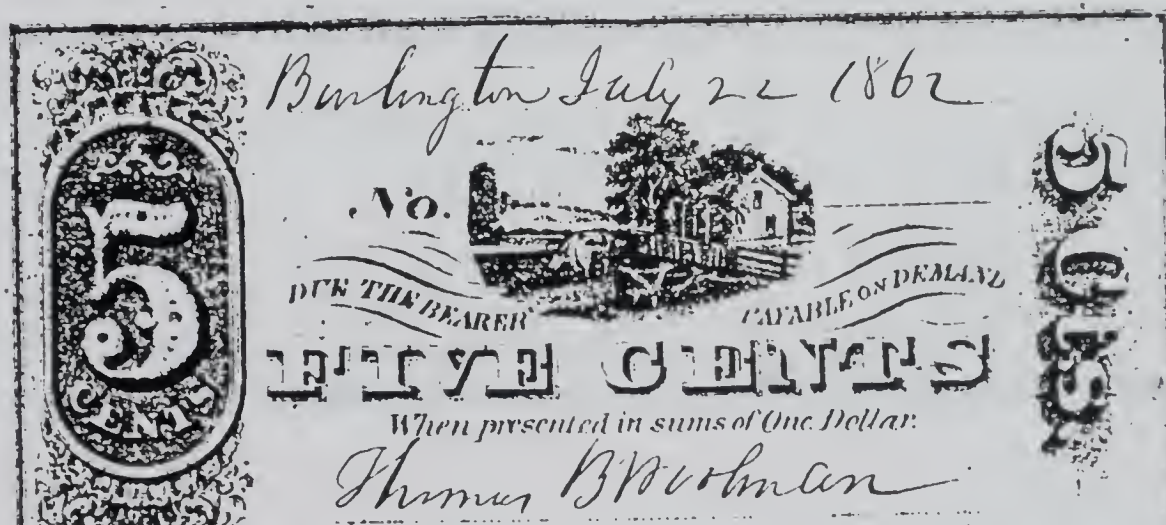 Burlington July 22 1862
5
CENTS
No.
DUE THE BEARER PAYABLE ON DEMAND
FIVE CENTS
When presented in sums of One Dollar.
Thomas B Woolman
5 CTS